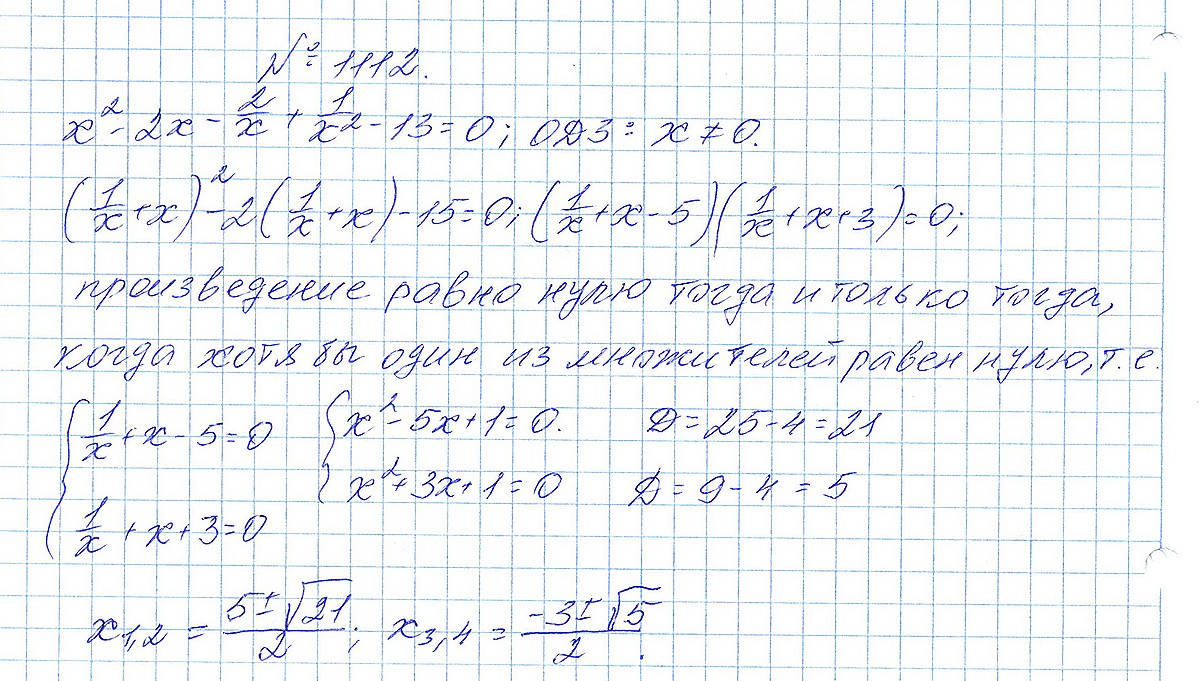 № 1112.
x² - 2x - 2/x + 1/x² - 13 = 0; ОДЗ: x ≠ 0.
(1/x + x)² - 2(1/x + x) - 15 = 0; (1/x + x - 5)(1/x + x + 3) = 0;
произведение равно нулю тогда и только тогда,
когда хотя бы один из множителей равен нулю, т.е.
{ 1/x + x - 5 = 0 { x² - 5x + 1 = 0. Д = 25 - 4 = 21
1/x + x + 3 = 0 x² + 3x + 1 = 0 Д = 9 - 4 = 5
x₁,₂ = (5 ± √21)/2; x₃,₄ = (-3 ± √5)/2.